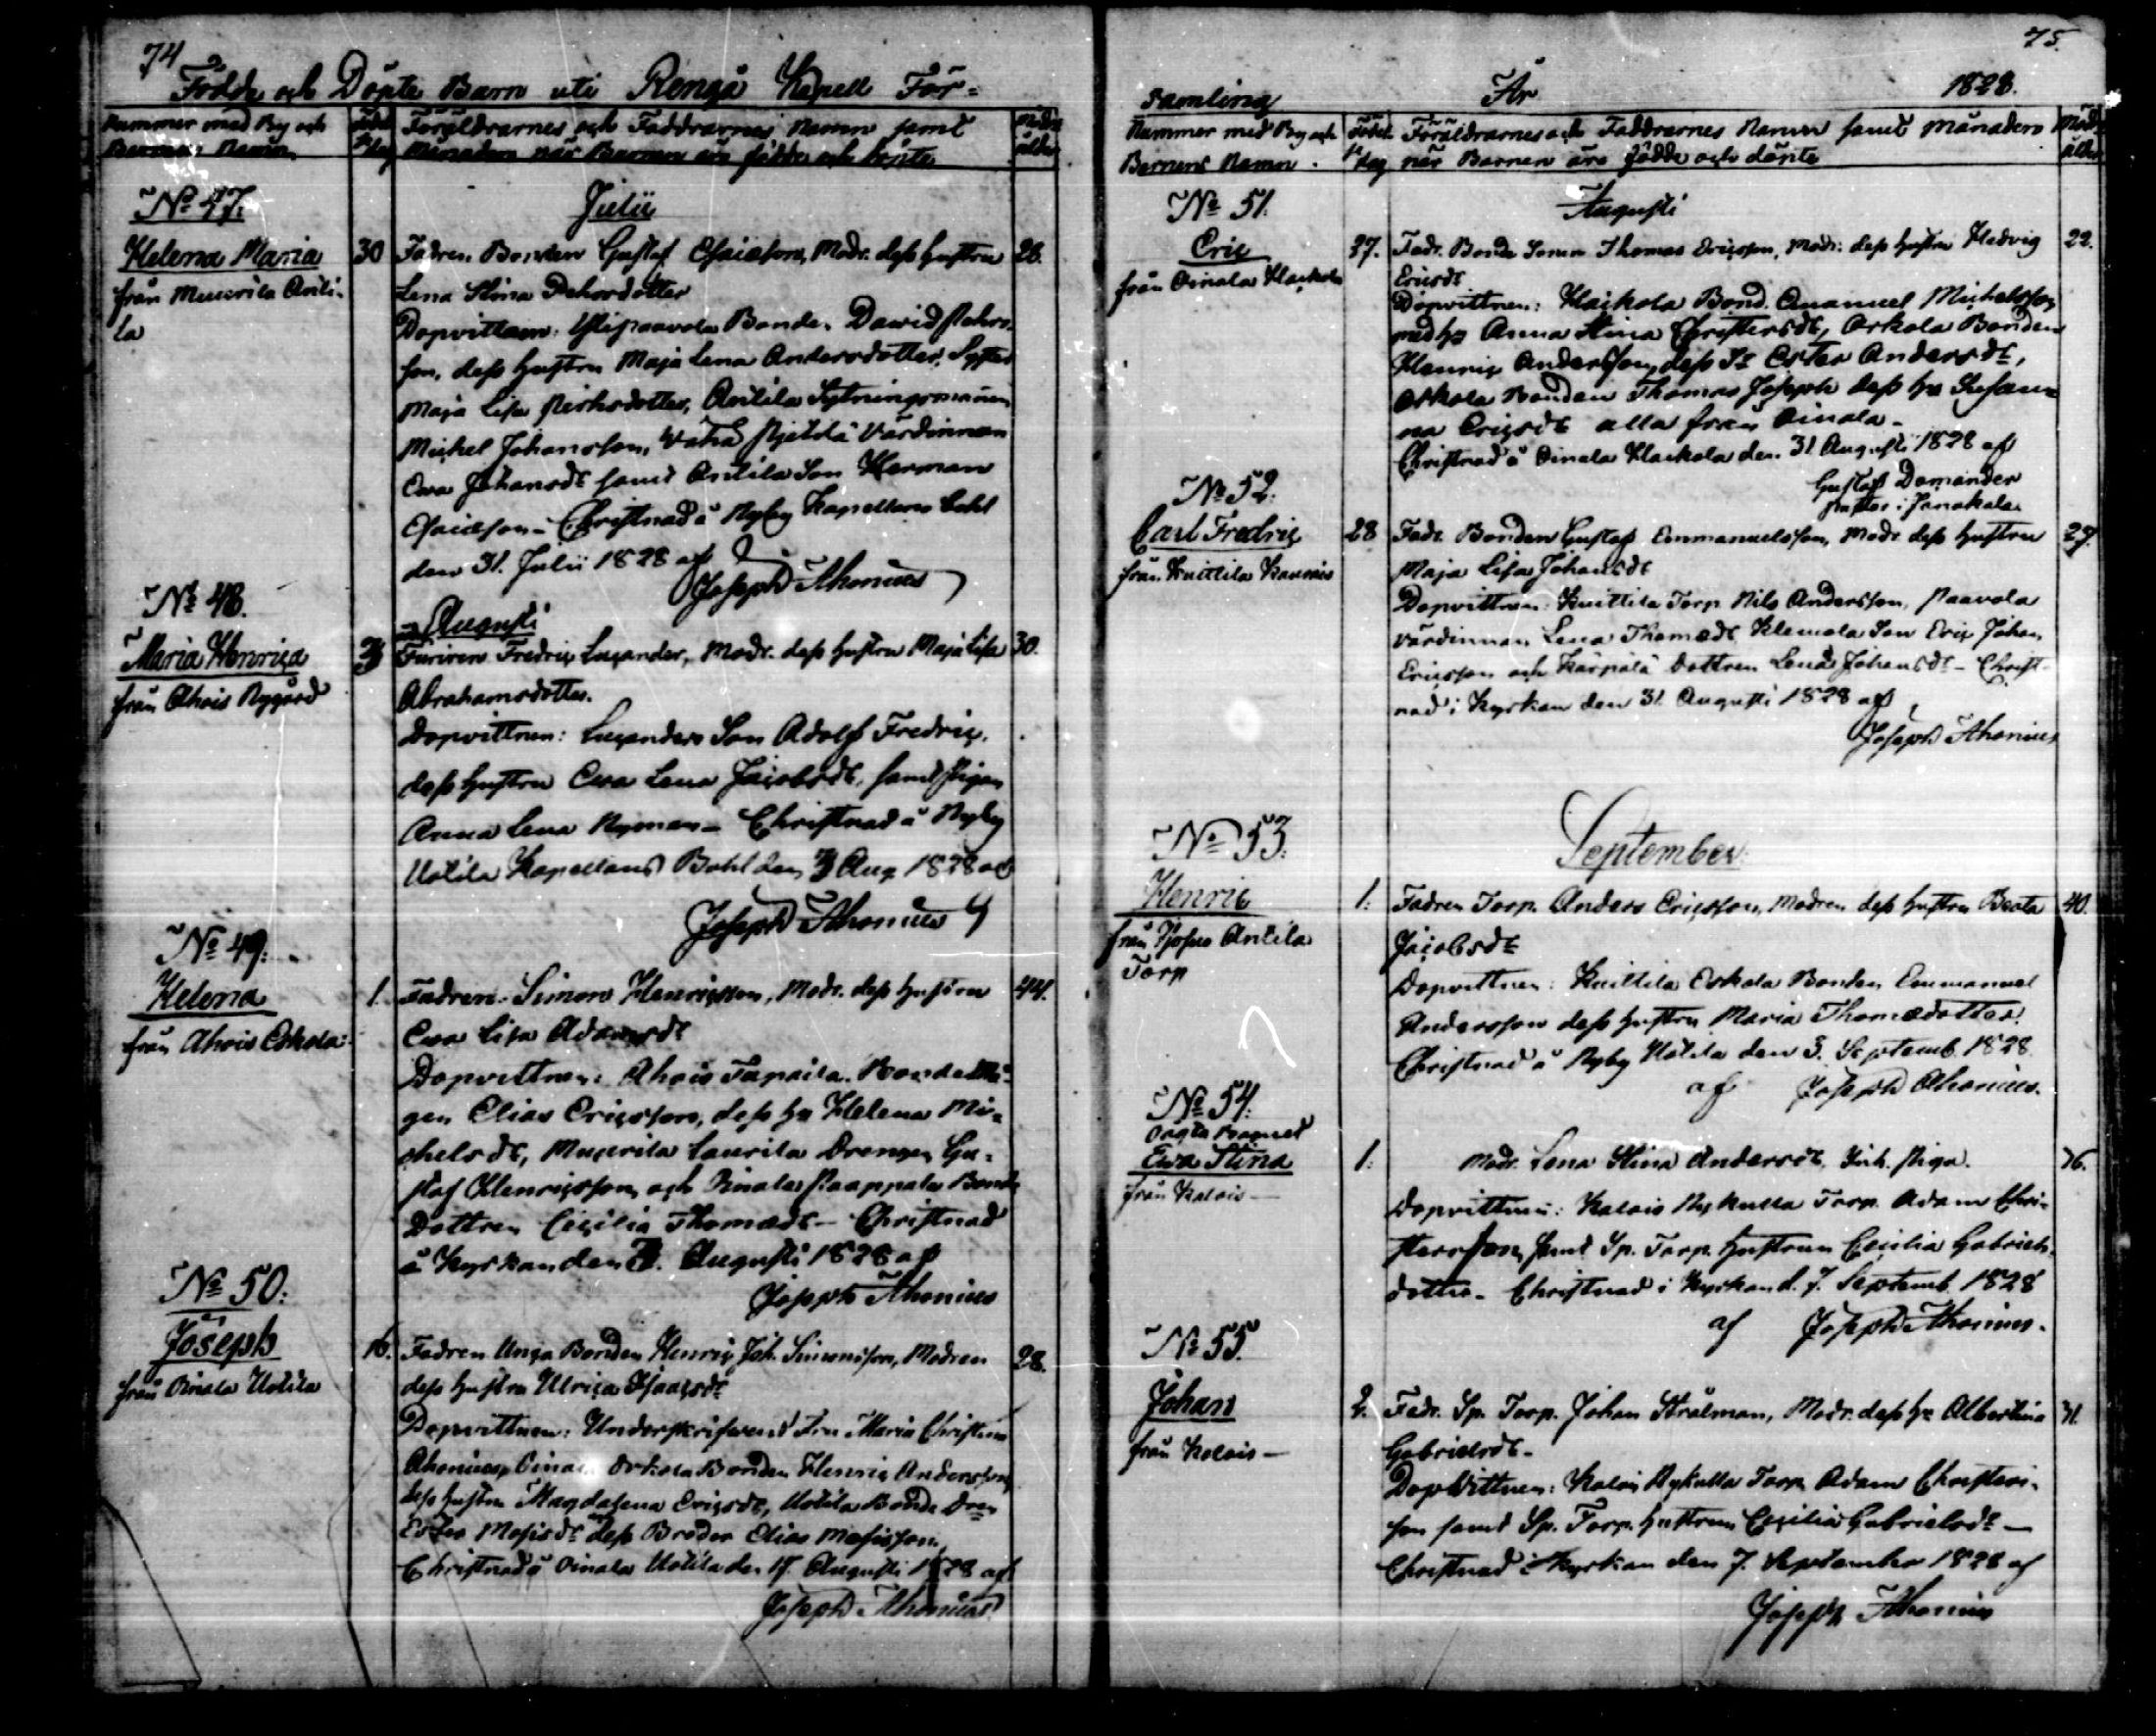 74
Födde och Döpte Barn uti Rengå Kapell För=
Nummer med By och
Barnens Namn
Födel.
dag
Föräldrarnes och Faddrarnes Namn samt
Månaden när Barnen äro födde och döpte
Modr.
ålder
Julii
No 47.
Helena Maria
från Muurila Anti-
la
30
Fadren Bonden Gustaf Esaiasson, Modr. dess hustru
Lena Stina Pehrsdotter
26.
Dopvittnen: Ylipaavola Bonden David Pehrs-
son, dess hustru Maja Lena Andersdotter, Syster
Maja Lisa Pehrsdotter, Antila Sytningsmannen
Michel Johansson, Wäha Pjetilä Värdinnan
Ewa Johansdr samt Antila Son Herman
Esaiasson - Christnad å Nyby Kapellans Bohl
den 31. Julii 1828 af
Joseph Ahonius
No 48.
Augusti
Maria Henrica
från Ahois Nygård
3
Furiren Fredric Lucander, Modr. dess hustru Maja Lisa
Abrahamsdotter.
30.
Dopvittnen: Lucanders Son Adolf Fredric,
dess hustru Ewa Lena Jacobsdr, samt Pigan
Anna Lena Nyman - Christnad å Nyby
Uotila Kapellans Bohl den 3 Aug 1828 af
Joseph Ahonius
No 49.
Helena
från Ahois Eskola
1.
Fadren Simon Henricsson, Modr. dess hustru
Ewa Lisa Adamsdr
44.
Dopvittnen: Ahois Tapaila Bonde
gen Elias Ericsson, dess hu Helena Mi-
chelsdr, Muurila Laurila Drengen Gu-
staf Henricsson och Oinala Paappala Bonde
Dottren Cecilia Thomædr - Christnad
å Kyrkan den 3. Augusti 1828 af
Joseph Ahonius
No 50.
Joseph
från Oinala Uotila
16.
Fadren Unga Bonden Henric Joh. Simonsson, Modren
dess hustru Ulrica Isaacsdr
28.
Dopvittnen: Underskrifwens Fru Maria Christina
Ahonius, Oinala Orkola Bonden Henric Andersson,
dess hustru Magdalena Ericsdr, Uotila Bonde Dren
Ester Mosisdr dess Broder Elias Mosisson.
Christnad å Oinala Uotila den 17. Augusti 1828 af
Joseph Ahonius
75.
Samling
År
1828.
Nummer med By och
Barnens Namn.
Födel.
dag
Föräldrarnes och Faddrarnes Namn samt Månaden
när Barnen äro födde och döpte
Modr.
ålder
Augusti
No 51.
Eric
från Oinala Klackola
27.
Fadr. Bonde Sonen Thomas Ericsson, Modr: dess hustru Hedvig
Ericsdr
22.
Dopvittnen: Klaikola Bond. Emanuel Michelsson
med hu Anna Stina Christersdr, Orkola Bonden
Henric Andersson, dess Sr Ester Andersdr,
Orkola Bonden Thomas Joseph dess hu Susan-
na Ericsdr alla från Oinala -
Christnad å Oinala Klaikola den 31 Augusti 1828 af
Gustaf Domander
pastor i Janakala
No 52.
Carl Fredric
från Kuittila Kaunois
28
Fadr. Bonden Gustaf Emmanuelsson, Modr. dess hustru
Maja Lisa Johansdr
27.
Dopvittnen: Kuittila Torp. Nils Andersson, Paavola
värdinnan Lena Thomædr Klemola Son Eric Johan
Ericsson och Kärpälä dottren Lena Johansdr - Christ-
nad i Kyrkan den 31 Augusti 1828 af
Joseph Ahonius
September
No 53.
Henric
från Antila
Torp
1.
Fadren Torp. Anders Ericsson, Modren dess hustru Beata
Jacobsdr
40.
Dopvittnen: Kuittila Eskola Bonden Emmanuel
Andersson dess hustru Maria Thomædotter.
Christnad å Nyby Uotila den 3. Septemb. 1828.
af Joseph Ahonius.
No 54.
Oägta Barnet
Ewa Stina
från Kalois -
1.
Modr. Lena Stina Andersdr, Inh. Piga.
36.
Dopvittnen: Kalois Nykulla Torp. Adam Chri-
stersson, samt Sp. Torp. hustrun Cecilia Gabriels-
dotter - Christnad i Kyrkan d. 7. Septemb. 1828
af Joseph Ahonius.
No 55.
Johan
från Kalois -
2.
Fadr. Sp. Torp. Johan Strålman, Modr. dess hu Albertina
Gabrielsdr -
31.
Dopvittnen: Kalois Nykulla Torp. Adam Christers-
son samt Sp. Torp. hustrun Cecilia Gabrielsdr -
Christnad i Kyrkan den 7. September 1828 af
Joseph Ahonius